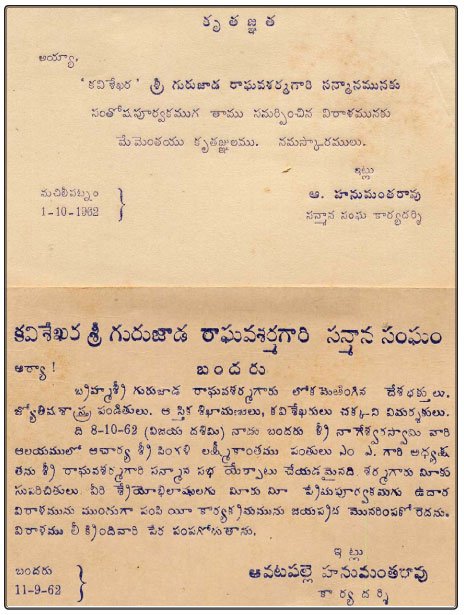 కృతజ్ఞత
అయ్యా,
'కవిశేఖర' శ్రీ గురుజాడ రాఘవశర్మగారి సన్మానమునకు
సంతోషపూర్వకముగ తాము సమర్పించిన విరాళమునకు
మేమెంతయు కృతజ్ఞులము. నమస్కారములు.
ఇట్లు
మచిలీపట్నం
ఆ. హనుమంతరావు
1-10-1962
సన్మాన సంఘ కార్యదర్శి
కవిశేఖర శ్రీ గురుజాడ రాఘవశర్మగారి సన్మాన సంఘం
బందరు
ఆర్యా!
బ్రహ్మశ్రీ గురుజాడ రాఘవశర్మగారు లోకమెఱింగిన దేశభక్తులు.
జ్యోతిషశాస్త్ర పండితులు. ఆస్తిక శిఖామణులు, కవిశేఖరులు చక్కని విమర్శకులు.
ది 8-10-62 (విజయ దశమి) నాడు బందరు శ్రీ నాగేశ్వరస్వామి వారి
ఆలయములో ఆచార్య శ్రీ పింగళి లక్ష్మీకాంతము పంతులు ఎం ఎ. గారి అధ్యక్ష
తను శ్రీ రాఘవశర్మగారి సన్మాన సభ యేర్పాటు చేయడమైనది. శర్మగారు మీకు
సుపరిచితులు. వీరి శ్రేయోభిలాషులగు మీరు మీ ప్రేమపూర్వకమగు ఉదార
విరాళమును ముందుగా పంపి యీ కార్యక్రమమును జయప్రద మొనరింపకోరెదను.
విరాళము లీ క్రిందివారి పేర పంపగోరుతాను.
ఇట్లు
బందరు
ఆవటపల్లె హనుమంతరావు
11-9-62
కార్యదర్శి